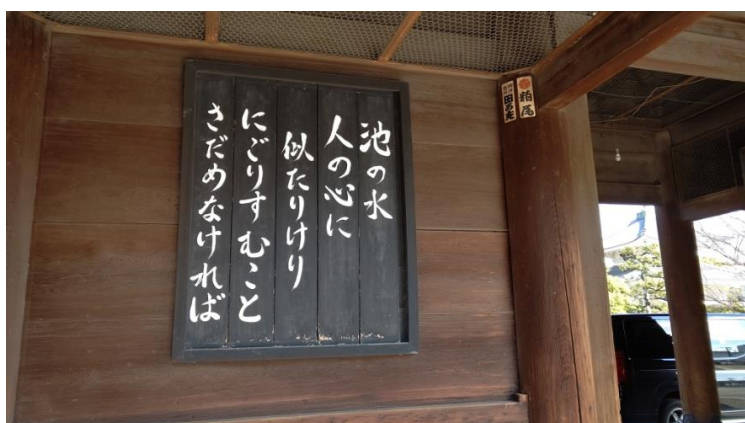 池の水
人の心に
似たりけり
にごりすむこと
さだめなければ
粕尾